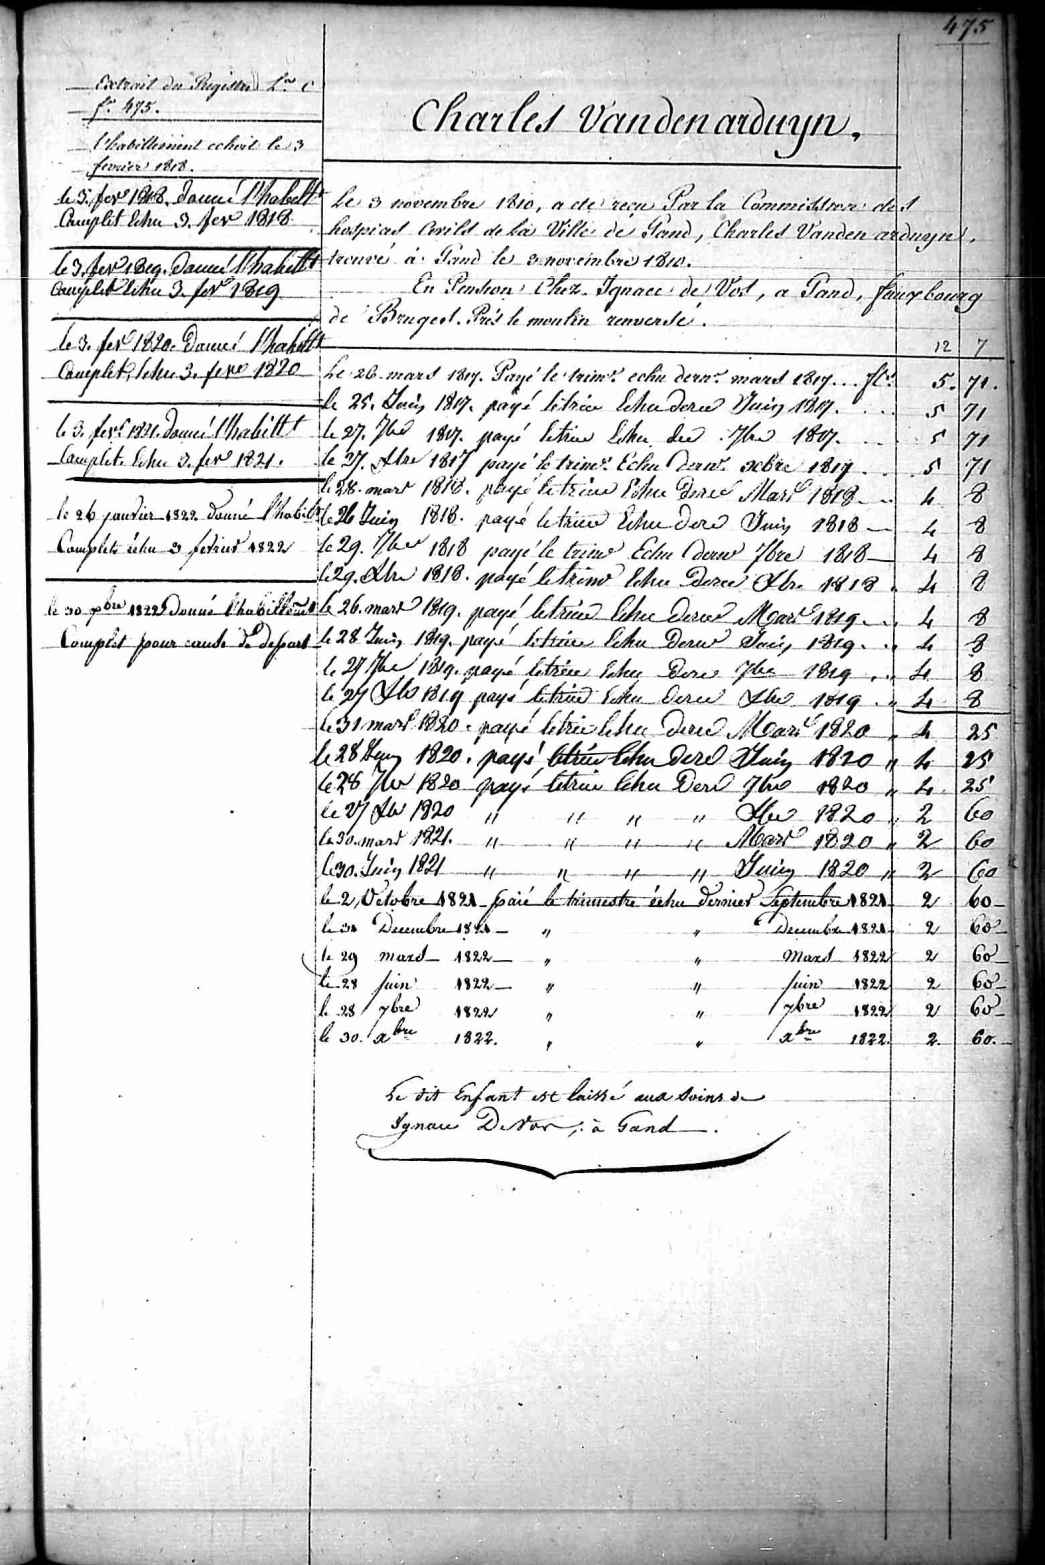 475
Extrait du Registre L.re C
f.o 475.
L'habillement echoit le 3
fevrier 1818.
le 5. fevr 1818. donné l'habillt
Complet Echu 3. fevr 1818
le 3. fevr 1819. donné l'habillt
Complet Echu 3. fevr 1819
le 3. fevr 1820. donné l'habillt
Complet, Echu 3. fevr 1820
le 3. fevr 1821. donné l'habillt
Complet. Echu 3. fevr 1821.
le 26 janvier 1822 donné l'habilt
Complet échu 3 fevrier 1822
le 30 xbre 1822 donné l'habillemt
Complet pour cause de depart
Charles Vandenarduyn.
Le 3 novembre 1810, a été reçu Par la Commission des
hospices Civils de la Ville de Gand, Charles Vandenarduyn,
trouvé à Gand le 3 novembre 1810.
En Pension Chez Ignace de Vos, a Gand, fauxbourg
de Bruges. Près le moulin renversé.
12 7
Le 26 mars 1817. Payé le trimr. echu dernr. mars 1817... fl. 5. 71.
le 25. Juin 1817. payé letrim Echu dern Juin 1817. 5 71
le 27. 7bre 1817. payé letrim Echu der 7bre 1817. 5 71
le 27. Xbre 1817 payé le trimr. Echu dernr. xbre 1817. 5 71
le 28. mars 1818. payé letrim Echu Dern Mars 1818. 4 8
le 26 Juin 1818. payé letrim Echu dern Juin 1818 4 8
le 29. 7bre 1818 payé le trimr Echu dern 7bre 1818 4 8
le 29. Xbre 1818. payé le trimr Echu Dern Xbre 1818. 4 8
le 26. mars 1819. payé letrim Echu dern Mars 1819. 4 8
le 28 Juin 1819. payé letrim Echu Dern Juin 1819. 4 8
le 27 7bre 1819. payé letrim Echu Dern 7bre 1819. 4 8
le 27 Xbre 1819 payé letrim Echu dern Xbre 1819. " 4 8
le 31 mars 1820. payé letrim Echu dern Mars 1820 " 4 25
le 28 Juin 1820. payé letrim Echu dern Juin 1820 " 4 25
le 28 7bre 1820 payé letrim Echu Dern 7bre 1820 " 4 25
le 27 Xbre 1820 " " " " Xbre 1820 " 2 60
le 30. mars 1821. " " " " Mars 1820 " 2 60
le 30. Juin 1821 " " " " Juin 1820 " 2 60
le 2 Octobre 1821 – paié le trimestre échu dernier Septembre 1821 2 60
le 31 Decembre 1821 – " " Decembre 1821 2 60
le 29 mars – 1822 – " " mars 1822 2 60
le 28 juin 1822 – " " juin 1822 2 60
le 28 7bre 1822 " " 7bre 1822 2 60
le 30. xbre 1822. " " xbre 1822. 2. 60.
Le dit Enfant est laissé aux soins de
Ignace DeVos, à Gand.